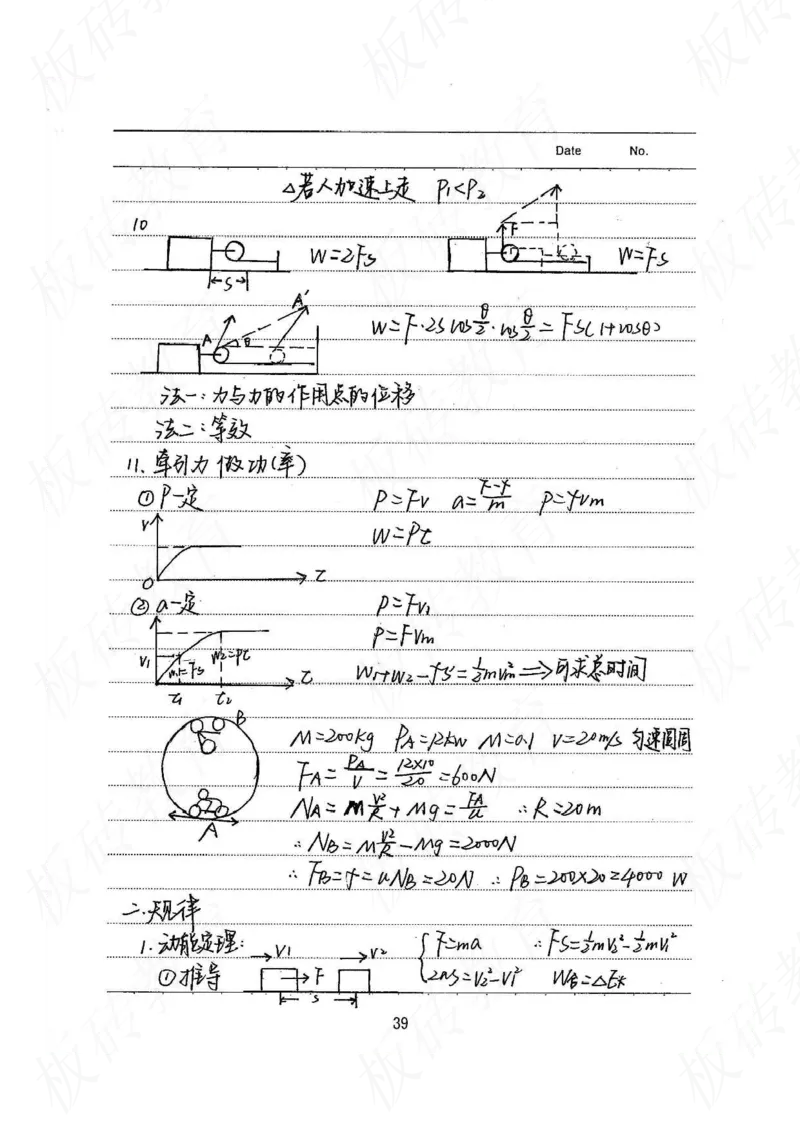 Date No.
△若人加速上走 P₁<P₂
10
W=2Fs
F
W=Fs
S
A A' θ
W=F·2S cos θ/2·cos θ/2=Fs(1+cosθ)
法一:力与力的作用点的位移
法二:等效
11. 牵引力做功(率)
① P一定 P=Fv a=(F-f)/m P=fvm
V W=Pt
O t
② a一定 P=Fv₁
P=Fvm
V₁ W₁=Fs W₂=Pt t W₁+W₂-fs'=½mvm² ⟹可求总时间
t₁ t₂
B
M=200kg PA=12kw M=0.1 V=20m/s 匀速圆周
FA=PA/V=12×10/20=600N
NA=M V²/R+Mg=FA/u ∴R=20m
A
∴NB=M V²/R-Mg=2000N
∴FB=f=uNB=20N ∴PB=200×20=4000W
二.规律
1.动能定理: V₁ V₂ F=ma ∴FS=½mV₂²-½mV₁²
①推导 F S 2as=V₂²-V₁² W合=△Ek
39
板砖教育